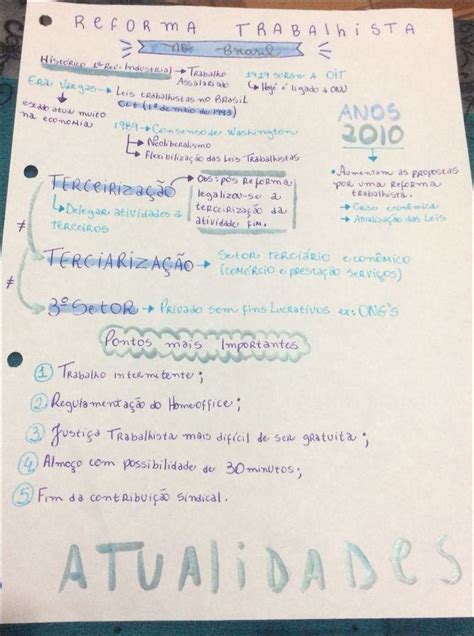 REFORMA TRABALHISTA
NO BRASIL
Histórico 1ª Rev. Industrial → Trabalho Assalariado
1919 surge a OIT
↳ Hoje é ligado à ONU
Era Vargas → Leis trabalhistas no Brasil
CLT (1º de maio de 1943)
↳ estado atua muito na economia
1989 → Consenso de Washington
↳ Neoliberalismo
↳ Flexibilização das Leis Trabalhistas
ANOS
2010
• Aumentam as propostas
por uma reforma
trabalhista.
→ Crise econômica
→ Atualização das Leis
≠
TERCEIRIZAÇÃO
↳ Delegar atividades a
terceiros
Obs: pós reforma
legalizou-se a
terceirização da
atividade fim.
≠
TERCIARIZAÇÃO → Setor terciário econômico
(comércio e prestação serviços)
3º SETOR → Privado sem fins lucrativos ex: ONG's
Pontos mais Importantes
1 Trabalho intermitente;
2 Regulamentação do Homeoffice;
3 Justiça Trabalhista mais difícil de ser gratuita;
4 Almoço com possibilidade de 30 minutos;
5 Fim da contribuição sindical.
ATUALIDADES